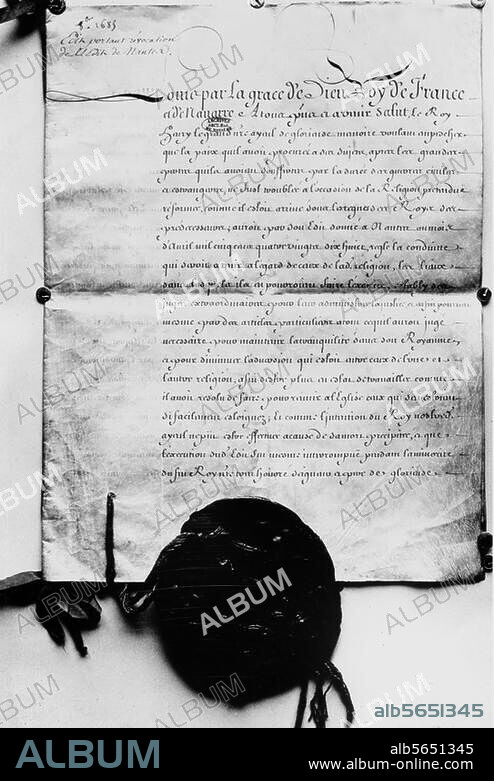 8.bre 1685
Edit portant revocation
de L'Edit de Nantes.
par La grace de Dieu Roy de France
et de Navarre A tous salut, le Roy
Henry le grand ayeul de glorieuse memoire voulant empescher
que la paix qu'il avoit procurée a ses sujets apres les grandes
pertes qu'ils avoient souffertes par la durée des guerres civiles
et estrangeres, ne fust troublée a l'occasion de la Religion pretendue
reformée, comme il estoit arrivé sous les regnes des Roys ses
predecesseurs, auroit par son Edit donné a Nantes au mois
d'avril mil cinq cens quatre vingts dix huict, reglé la conduite
a l'egard de ceux de lad. religion, les lieux
establi des
juges extraordinaires pour leur administrer la justice et enfin pourveu
mesme par des articles particuliers a tout ce qu'il auroit jugé
necessaire pour maintenir la tranquilité dans son Royaume
et pour diminuer l'adversion qui estoit entre ceux de l'une et
l'autre religion, afin d'estre plus en estat de travailler comme
il avoit resolu de faire pour reunir a l'Eglise ceux qui s'en estoient
si facilement esloignez, Et comme l'intention du Roy nostred.
ayeul ne put estre effectuée a cause de sa mort precipitée, et que
l'execution dud. Edit fut mesme interrompue pendant la minorité
du feu Roy nostre tres honoré seigneur et pere de glorieuse
ALBUM
alb5651345
ALBUM
alb5651345
www.album-online.com